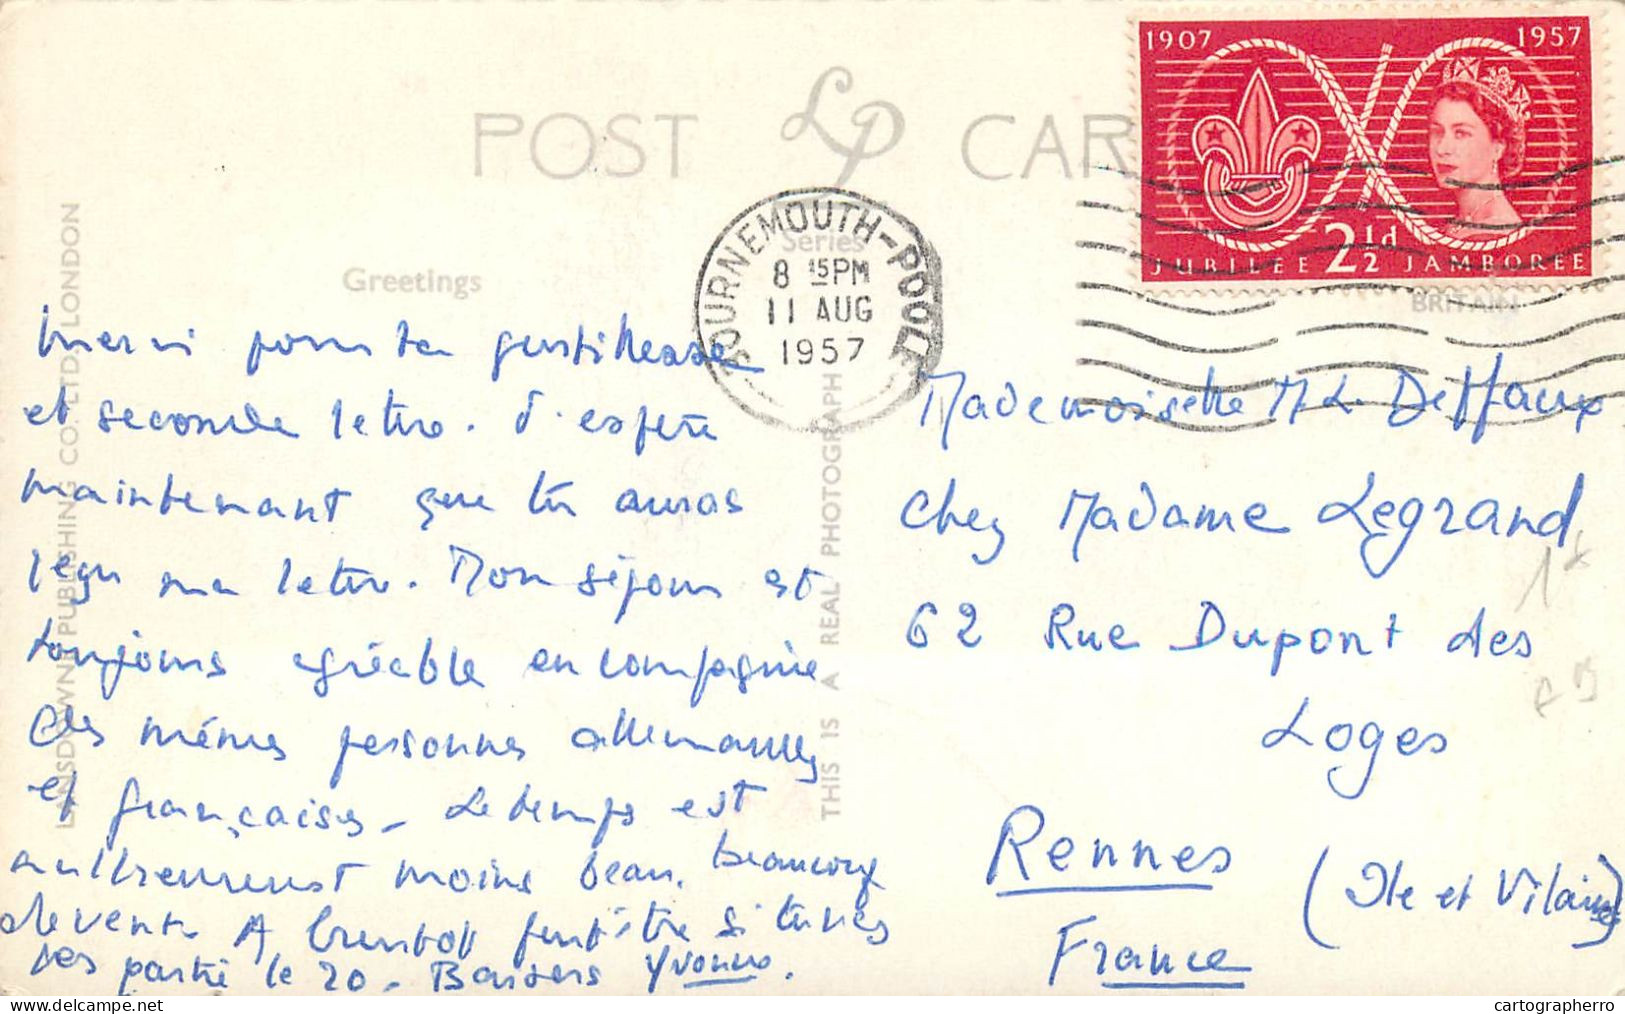 POST LP CARD
1907 1957
JUBILEE 2½d JAMBOREE
BOURNEMOUTH-POOLE
8 15PM
11 AUG
1957
Series
Greetings
BRITAIN
LANSDOWNE PUBLISHING CO. LTD. LONDON
THIS IS A REAL PHOTOGRAPH
Merci pour ta gentillesse
et seconde lettre. J'espère
maintenant que tu auras
reçu ma lettre. Mon séjour est
toujours agréable en compagnie
des mêmes personnes allemandes
et françaises. Le temps est
malheureusement moins beau, beaucoup
de vent. A bientôt peut-être si tu n'es
pas partie le 20. Baisers Yvonne.
Mademoiselle M L Deffaux
chez Madame Legrand
62 Rue Dupont des
Loges
Rennes
(Ile et Vilaine)
France
cartographerro